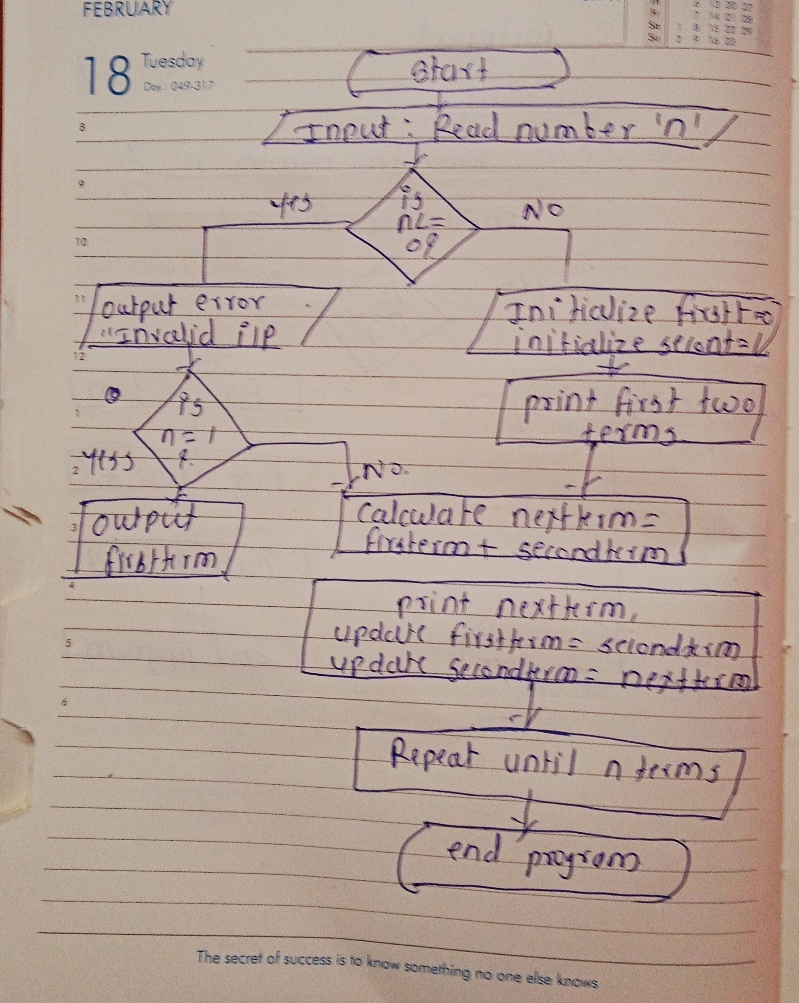 FEBRUARY
18 Tuesday
Day : 049-317
Start
Input : Read number 'n'
is
n<=
0?
yes
NO
output error
"Invalid i/p
Initialize firstt=0
initialize secont=1
is
n=1
?
yess
NO.
print first two
terms
output
firstterm
Calculate nextterm=
firsterm+ secondterm
print nextterm,
update firstterm= secondterm
update secondterm= nextterm
Repeat until n terms
end program
8
9
10
11
12
1
2
3
4
5
6
The secret of success is to know something no one else knows